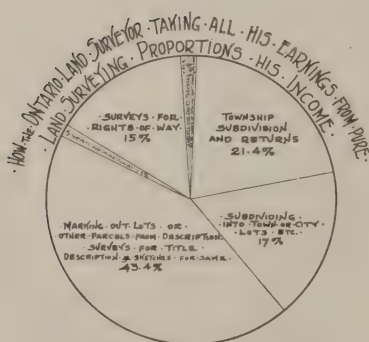 ·HOW·THE·ONTARIO·LAND·SURVEYOR·TAKING·ALL·HIS·EARNINGS·FROM·PURE·
·LAND·SURVEYING·PROPORTIONS·HIS·INCOME·
SURVEYS FOR
RIGHTS OF WAY
15%
TOWNSHIP
SUBDIVISION
AND RETURNS
21.4%
SUBDIVIDING
INTO TOWN OR CITY
LOTS ETC.
17%
MARKING OUT LOTS OR
OTHER PARCELS FROM DESCRIPTION
SURVEYS FOR TITLE
DESCRIPTION & SKETCHES FOR SAME
43.4%